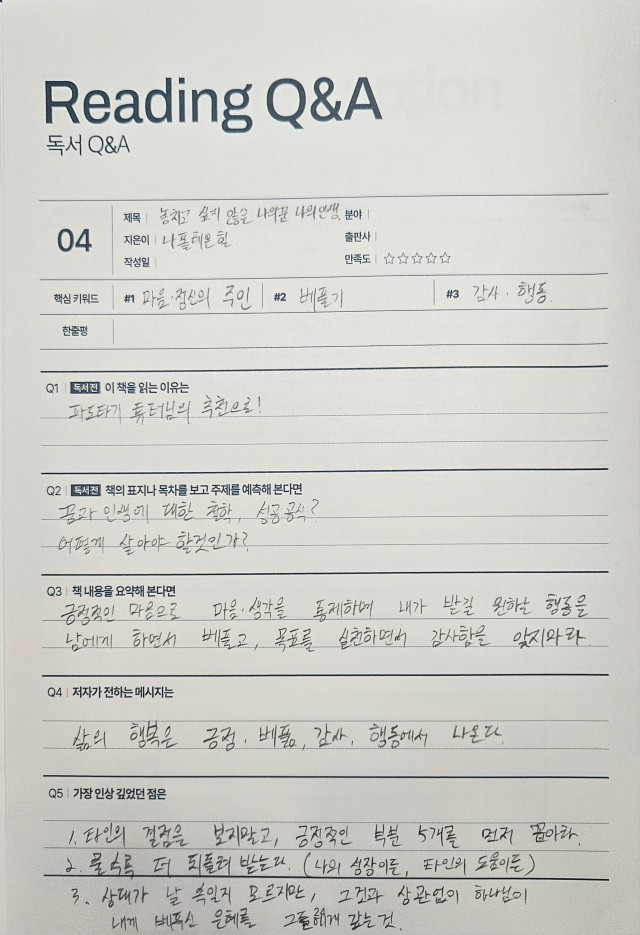 Reading Q&A
독서 Q&A
04
제목 | 놓치고 싶지 않은 나의꿈 나의인생. 분야 |
지은이 | 나폴레온 힐 출판사 |
작성일 | 만족도 | ☆☆☆☆☆
핵심 키워드 #1 마음·정신의 주인 #2 베풀기 #3 감사·행동.
한줄평
Q1 | 독서 전 이 책을 읽는 이유는
파도타기 튜터님의 추천으로!
Q2 | 독서 전 책의 표지나 목차를 보고 주제를 예측해 본다면
꿈과 인생에 대한 철학, 성공공식?
어떻게 살아야 할것인가?
Q3 | 책 내용을 요약해 본다면
긍정적인 마음으로 마음·생각을 통제하며 내가 받길 원하는 행동을
남에게 하면서 베풀고, 목표를 실천하면서 감사함을 잊지마라.
Q4 | 저자가 전하는 메시지는
삶의 행복은 긍정, 베풂, 감사, 행동에서 나온다.
Q5 | 가장 인상 깊었던 점은
1. 타인의 결점은 보지말고, 긍정적인 부분 5개를 먼저 꼽아라.
2. 줄수록 더 되돌려 받는다. (나의 성장이든, 타인의 도움이든)
3. 상대가 날 속일지 모르지만, 그것과 상관없이 하나님이
내게 베푸신 은혜를 갚는 것.